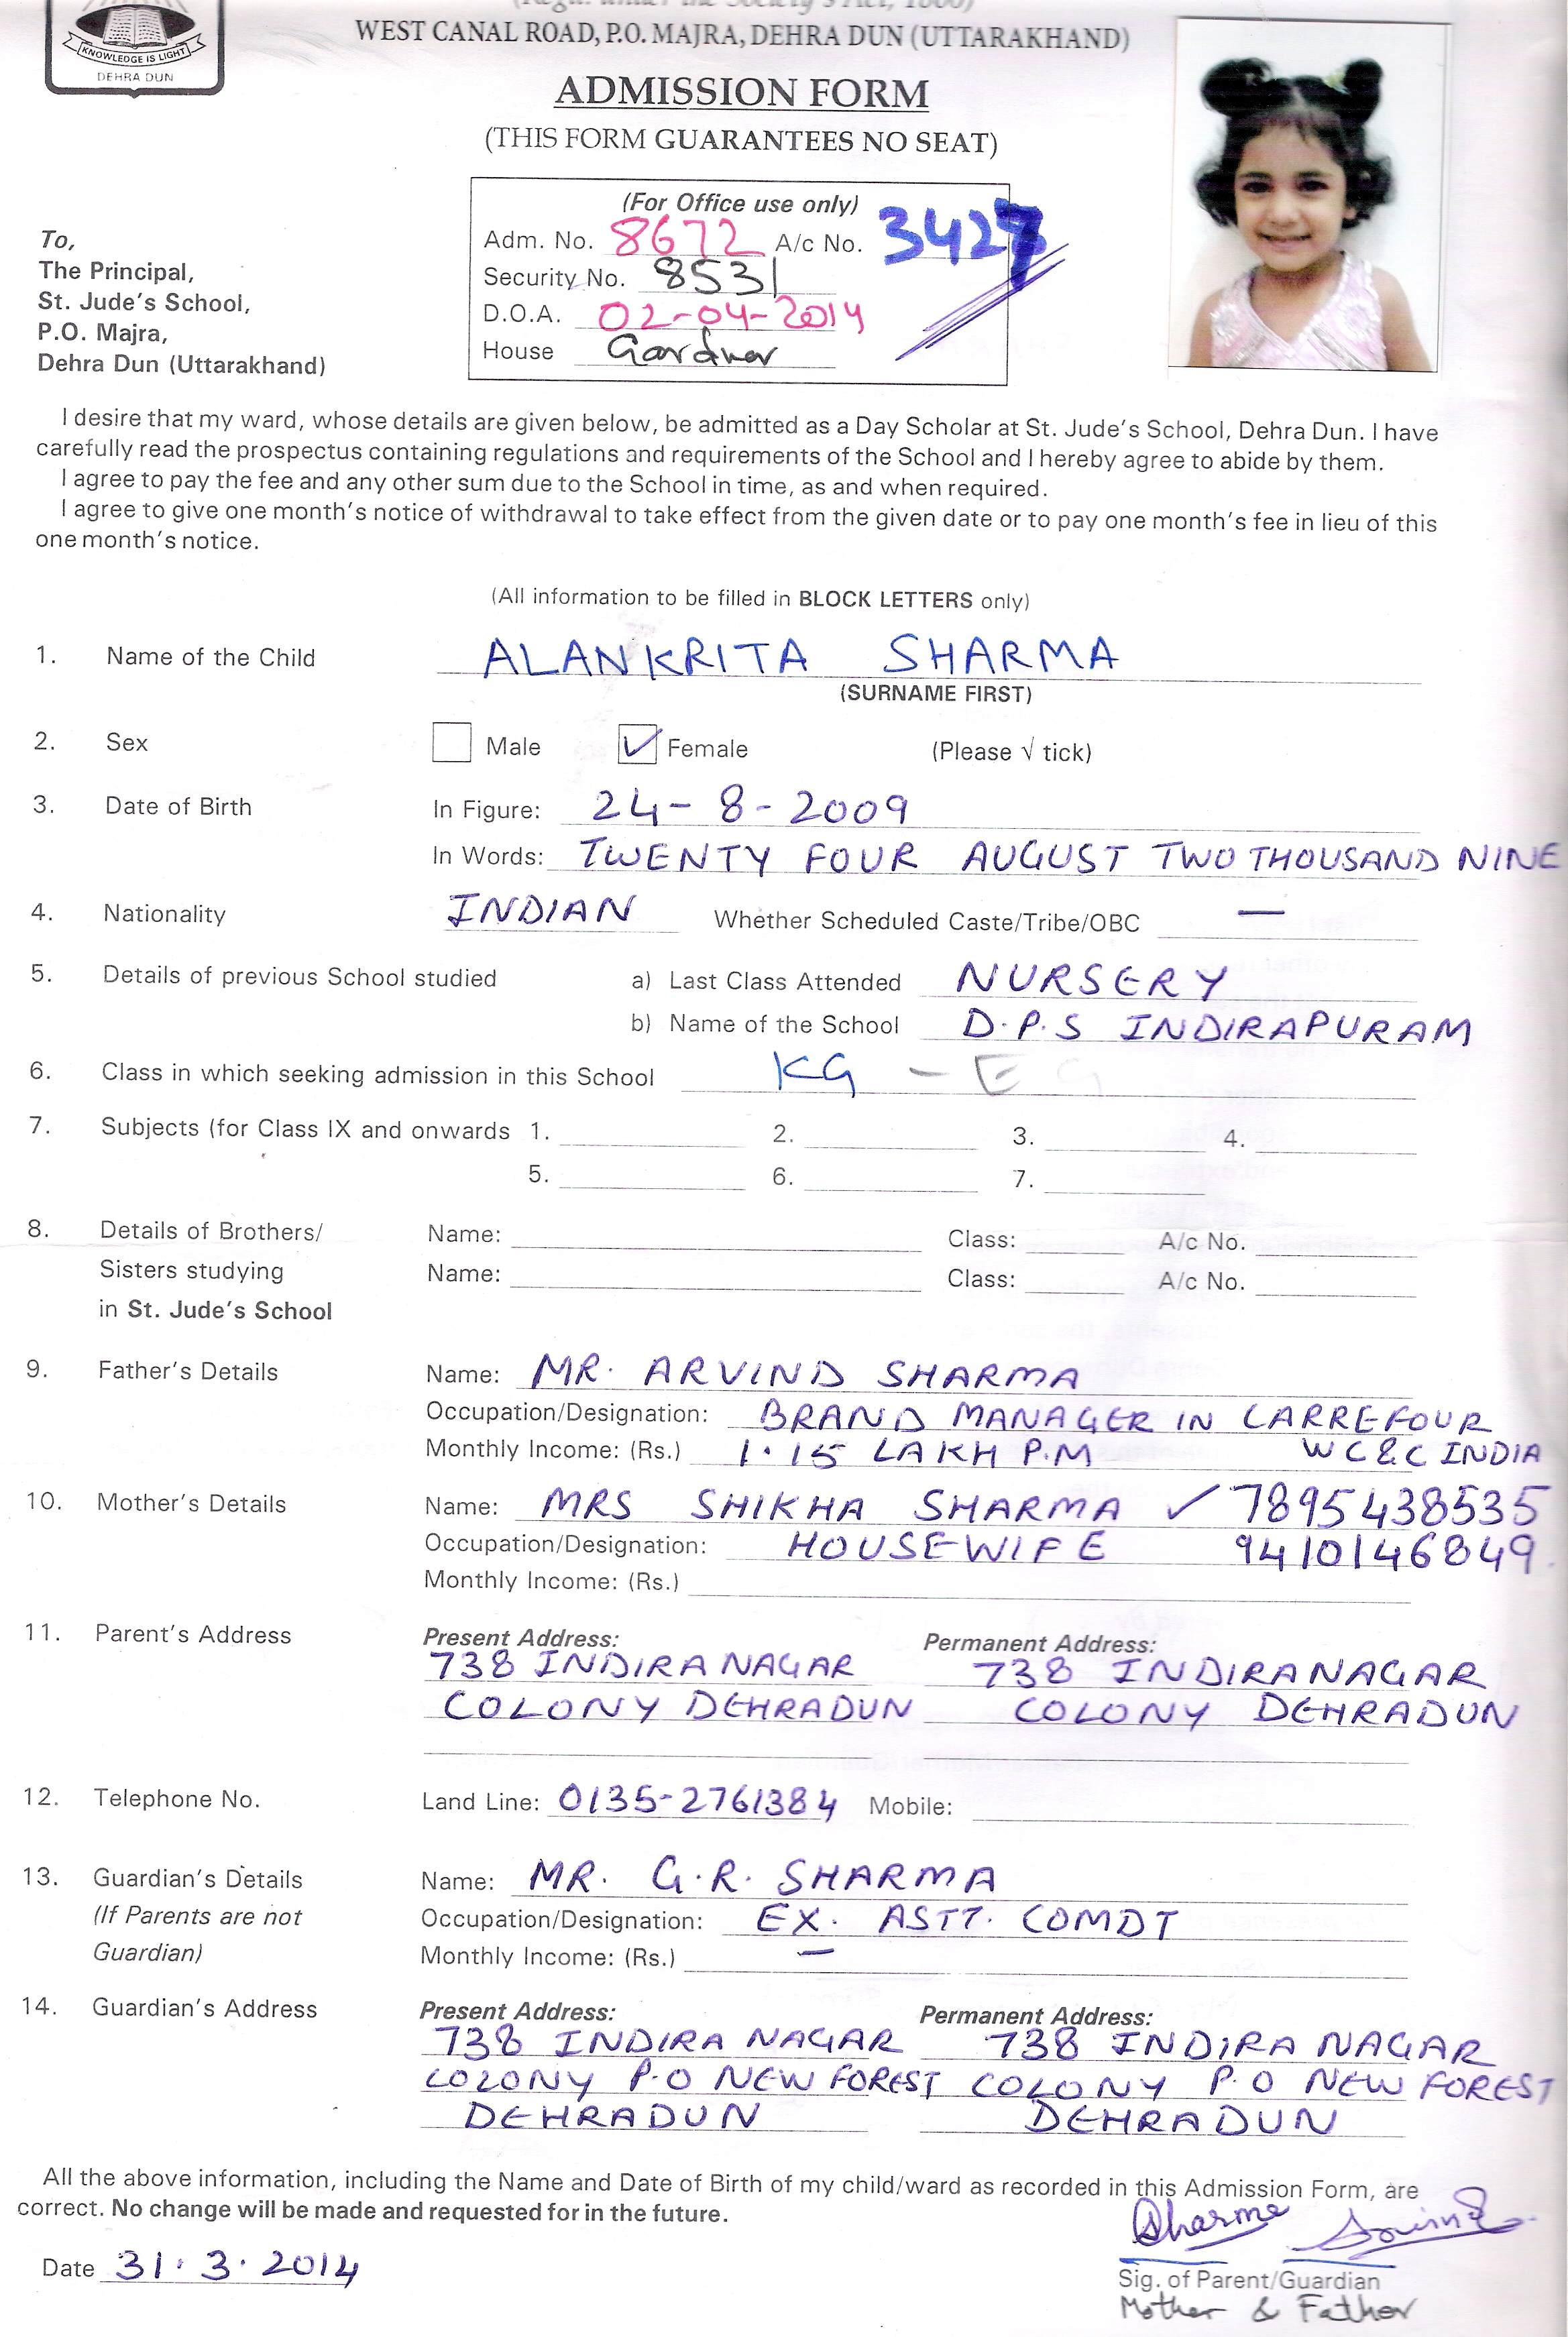 KNOWLEDGE IS LIGHT
DEHRA DUN
WEST CANAL ROAD, P.O. MAJRA, DEHRA DUN (UTTARAKHAND)
ADMISSION FORM
(THIS FORM GUARANTEES NO SEAT)
(For Office use only)
Adm. No. 8672 A/c No. 3427
Security No. 8531
D.O.A. 02-04-2014
House Gardner
To,
The Principal,
St. Jude's School,
P.O. Majra,
Dehra Dun (Uttarakhand)
I desire that my ward, whose details are given below, be admitted as a Day Scholar at St. Jude's School, Dehra Dun. I have
carefully read the prospectus containing regulations and requirements of the School and I hereby agree to abide by them.
I agree to pay the fee and any other sum due to the School in time, as and when required.
I agree to give one month's notice of withdrawal to take effect from the given date or to pay one month's fee in lieu of this
one month's notice.
(All information to be filled in BLOCK LETTERS only)
1. Name of the Child ALANKRITA SHARMA
(SURNAME FIRST)
2. Sex Male ✓ Female (Please √ tick)
3. Date of Birth In Figure: 24-8-2009
In Words: TWENTY FOUR AUGUST TWO THOUSAND NINE
4. Nationality INDIAN Whether Scheduled Caste/Tribe/OBC —
5. Details of previous School studied a) Last Class Attended NURSERY
b) Name of the School D.P.S INDIRAPURAM
6. Class in which seeking admission in this School KG - E G
7. Subjects (for Class IX and onwards 1. 2. 3. 4.
5. 6. 7.
8. Details of Brothers/ Name: Class: A/c No.
Sisters studying Name: Class: A/c No.
in St. Jude's School
9. Father's Details Name: MR. ARVIND SHARMA
Occupation/Designation: BRAND MANAGER IN CARREFOUR
Monthly Income: (Rs.) 1.15 LAKH P.M WC&C INDIA
10. Mother's Details Name: MRS SHIKHA SHARMA ✓ 7895438535
Occupation/Designation: HOUSEWIFE 9410146849
Monthly Income: (Rs.)
11. Parent's Address Present Address: Permanent Address:
738 INDIRA NAGAR 738 INDIRANAGAR
COLONY DEHRADUN COLONY DEHRADUN
12. Telephone No. Land Line: 0135-2761384 Mobile:
13. Guardian's Details Name: MR. G.R. SHARMA
(If Parents are not Occupation/Designation: EX. ASTT. COMDT
Guardian) Monthly Income: (Rs.) —
14. Guardian's Address Present Address: Permanent Address:
738 INDIRA NAGAR 738 INDIRA NAGAR
COLONY P.O NEW FOREST COLONY P.O NEW FOREST
DEHRADUN DEHRADUN
All the above information, including the Name and Date of Birth of my child/ward as recorded in this Admission Form, are
correct. No change will be made and requested for in the future.
Sharma Arvind
Date 31.3.2014
Sig. of Parent/Guardian
Mother & Father